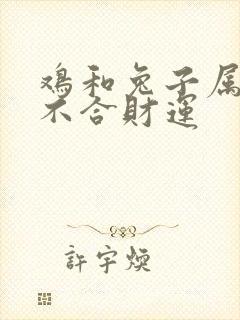 鸡和兔子属
不合財運
許宇煥